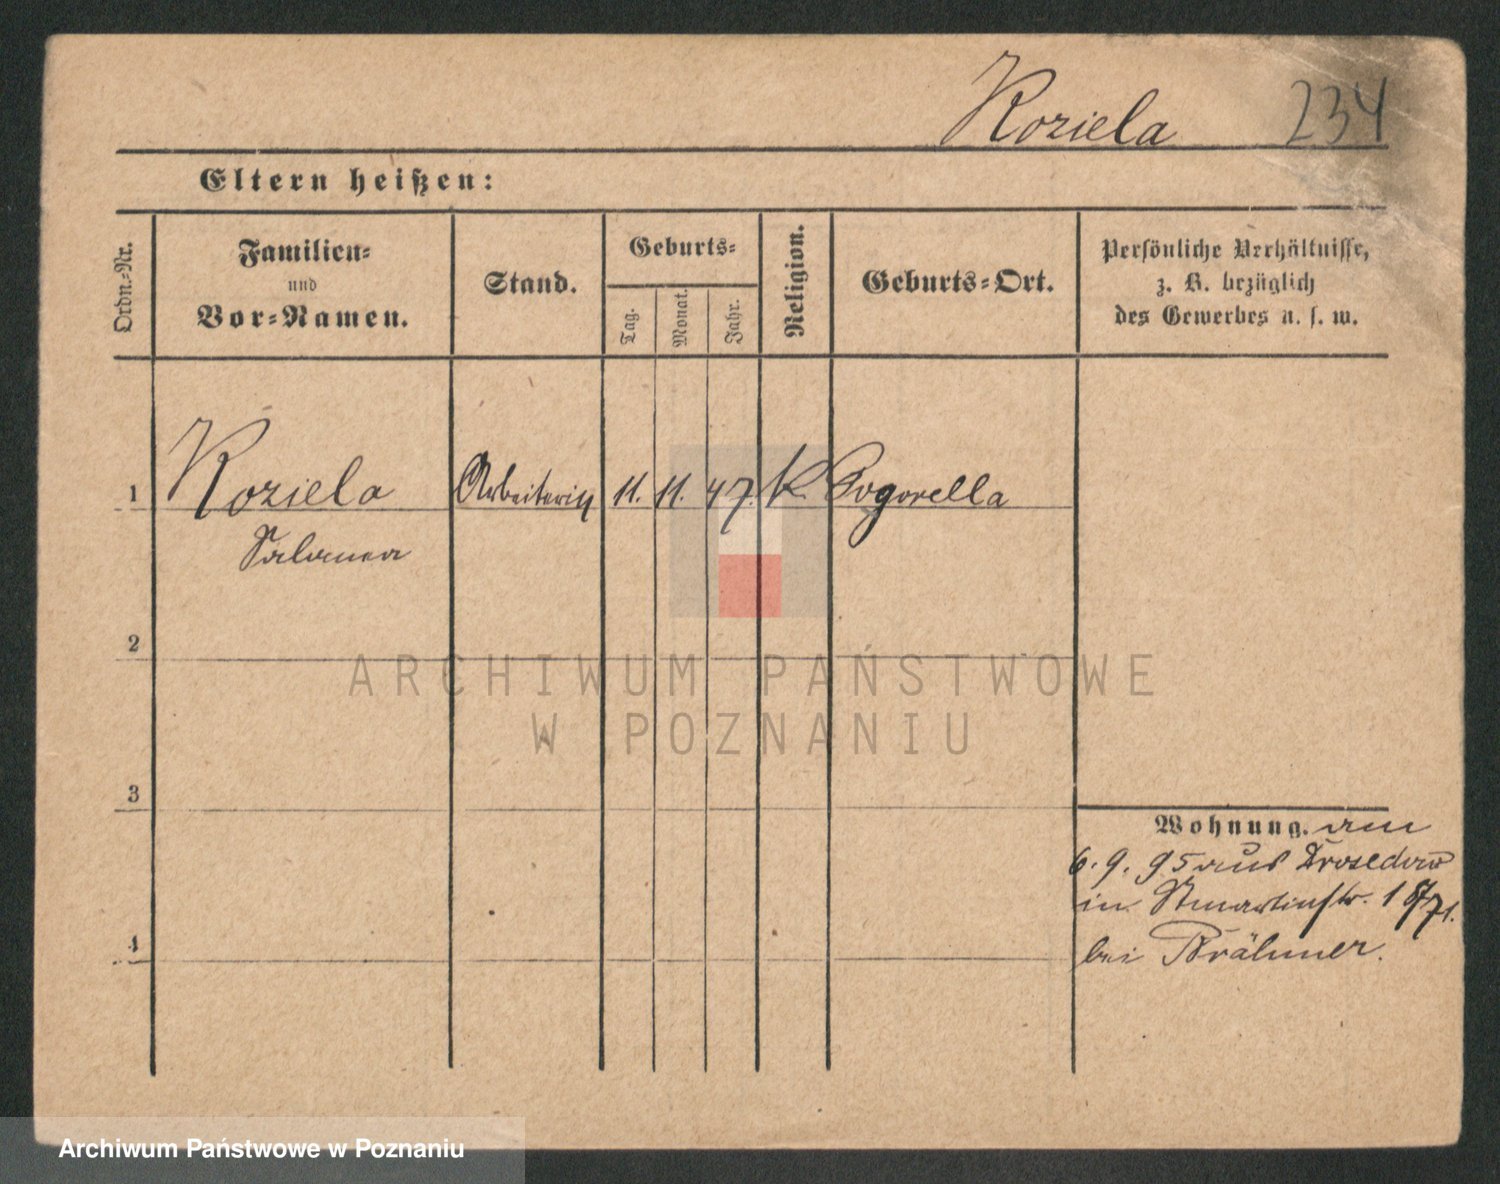 Koziela 234
Eltern heißen:
Ordn.-Nr.
Familien-
und
Vor-Namen.
Stand.
Geburts-
Tag.
Monat.
Jahr.
Religion.
Geburts-Ort.
Persönliche Verhältnisse,
z. B. bezüglich
des Gewerbes u. s. w.
1 Koziela Arbeiterin 11. 11. 47. K. Pogorella
Salomea
2
3
4
Wohnung. am
6. 9. 95 aus
in Stmartinstr.
bei Brähmer.
ARCHIWUM PAŃSTWOWE
W POZNANIU
Archiwum Państwowe w Poznaniu